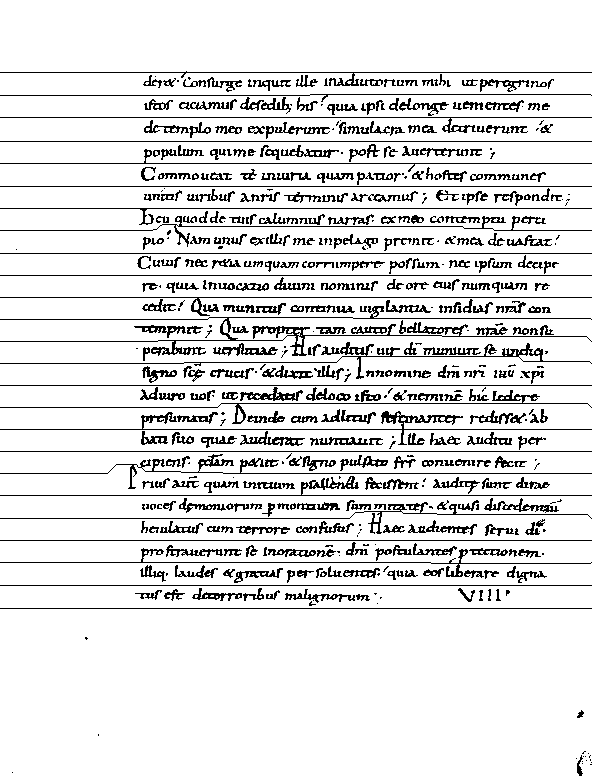 der&. Consurge inquit ille inadiutorium mihi ut peregrinos
istos eiciamus desedib; his. quia ipsi delonge uenientes me
detemplo meo expulerunt. simulacra mea detriuerunt. &
populum quime sequebatur. post se auerterunt;
Commoueat te iniuria quam patior. & hostes communes
unitis uiribus anris terminis arceamus; Et ipse respondit;
Heu quod de tuis calumniis narras. ex meo contemptu peri
pio. Nam unus exillis me inpelago premit. & mea deuastat.
Cuius nec retia umquam corrumpere possum. nec ipsum decipe
re. quia inuocatio diuini nominis de ore eius numquam re
cedit. Qua munitus continua uigilantia. insidias nras con
tempnit; Qua propter tam cautos bellatores nrae non su
perabunt uersutiae; His auditis uir di muniuit se undiq.
signo scę crucis. & dixit illis; Innomine dni nri ihu xpi
Adiuro uos. ut recedatis deloco isto. & neminē hic ledere
presumatis; Deinde cum adlitus festinanter rediss&. ab
bati suo quae audierat nuntiauit; Ille haec auditu per
cipiens. & signo pulsato frs conuenire fecit;
Prius aut quam initium psallendi fecissent. audite sunt dirae
uoces demoniorum p montium summitates. & quasi discedentiū
heiulatus cum terrore confusus; Haec audientes serui di.
prostrauerunt se inorationē. dni postulantes ptectionem.
illiq. laudes & gratias persoluentes. quia eos liberare digna
tus est deterroribus malignorum.
VIII